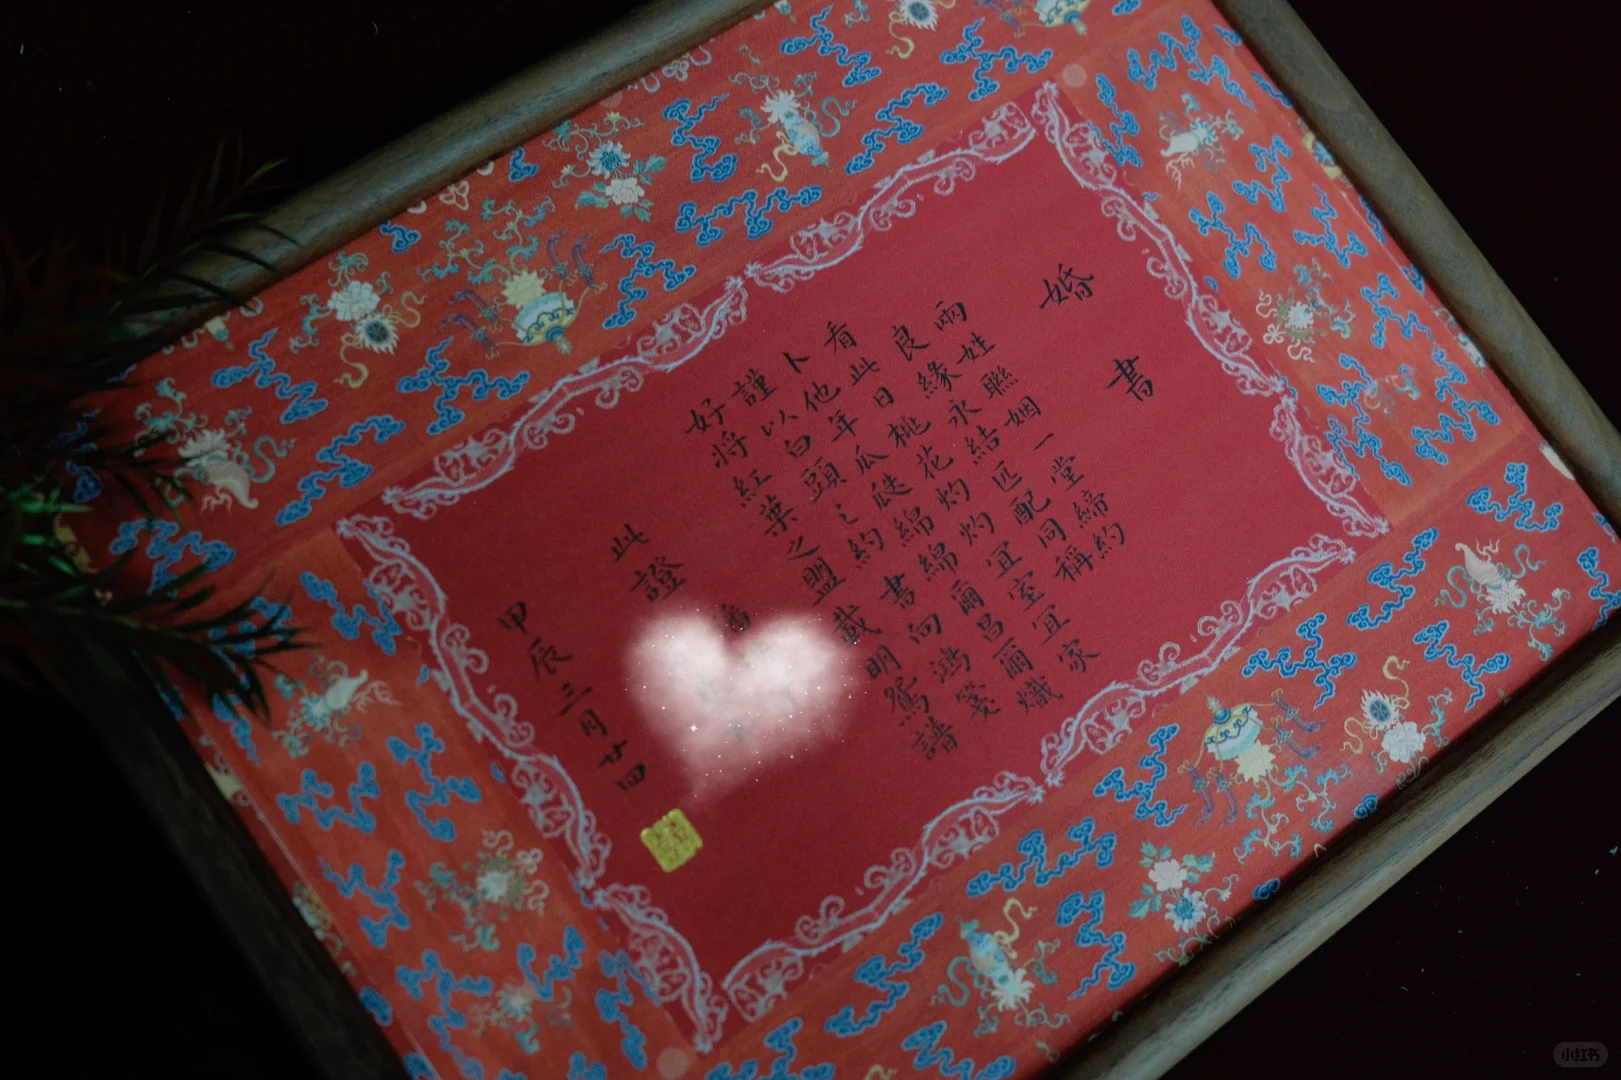 婚書
兩姓聯姻一堂締約
良緣永結匹配同稱
看此日桃花灼灼宜室宜家
卜他年瓜瓞綿綿爾昌爾熾
謹以白頭之約書向鴻箋
好將紅葉之盟載明鴛譜
此證
甲辰三月廿四
小红书